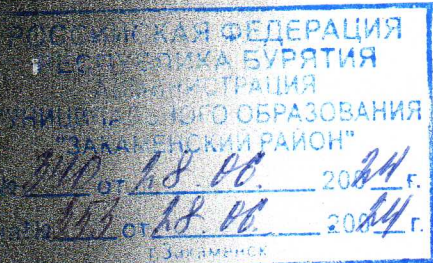 РОССИЙСКАЯ ФЕДЕРАЦИЯ
РЕСПУБЛИКА БУРЯТИЯ
АДМИНИСТРАЦИЯ
МУНИЦИПАЛЬНОГО ОБРАЗОВАНИЯ
"ЗАКАМЕНСКИЙ РАЙОН"
от 28.06. 2024 г.
№ 253 от 28.06. 2024 г.
г. Закаменск